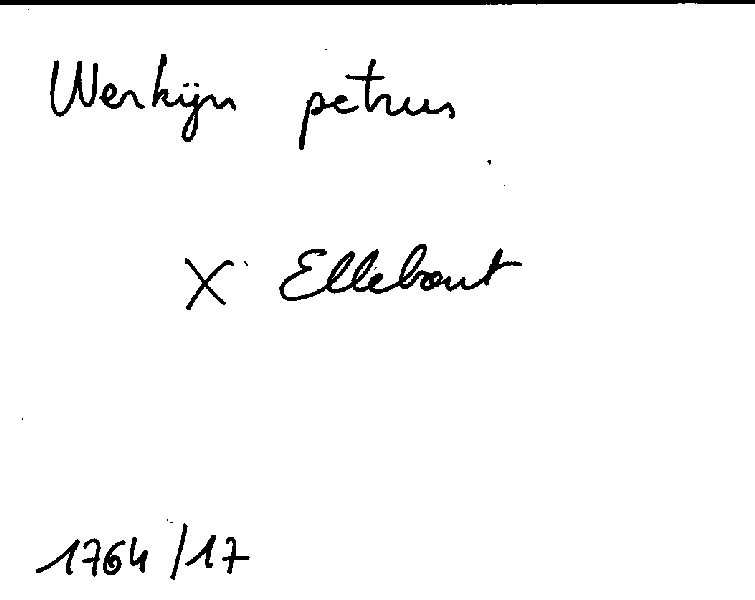 Werkijn petrus
X Ellebout
1764/17